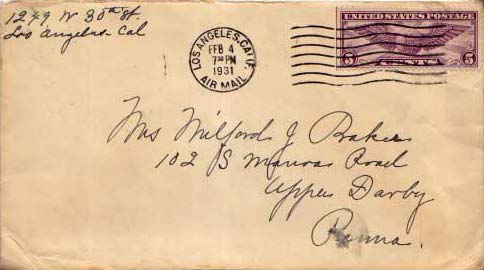 1249 W 30th St.
Los Angeles Cal
LOS ANGELES, CALIF.
FEB 4
7 30 PM
1931
AIR MAIL
UNITED STATES POSTAGE
5 CENTS 5
Mrs Milford J Baker
102 S Road
Upper Darby
Penna.